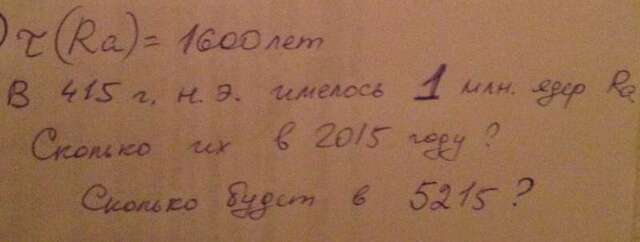 ) τ(Ra) = 1600 лет
В 415 г. н. э. имелось 1 млн. ядер Ra.
Сколько их в 2015 году?
Сколько будет в 5215?